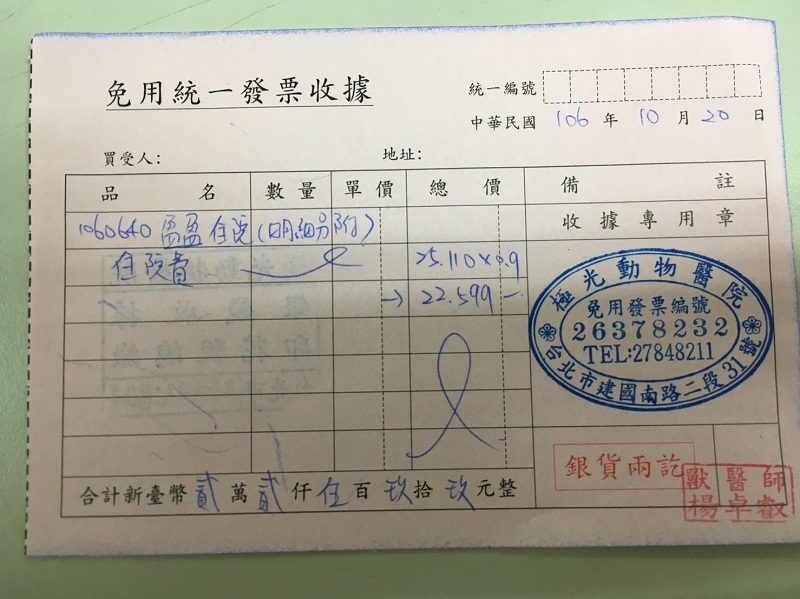 免用統一發票收據
統一編號
中華民國 106 年 10 月 20 日
買受人： 地址：
品名 數量 單價 總價 備註
收據專用章
1060640 盈盈 住院(明細另附)
住院費 25.110×0.9
→ 22.599-
極光動物醫院
免用發票編號
26378232
TEL:27848211
台北市建國南路二段31號
銀貨兩訖
獸醫師
楊卓叡
合計新臺幣 貳 萬 貳 仟 伍 百 玖 拾 玖 元整